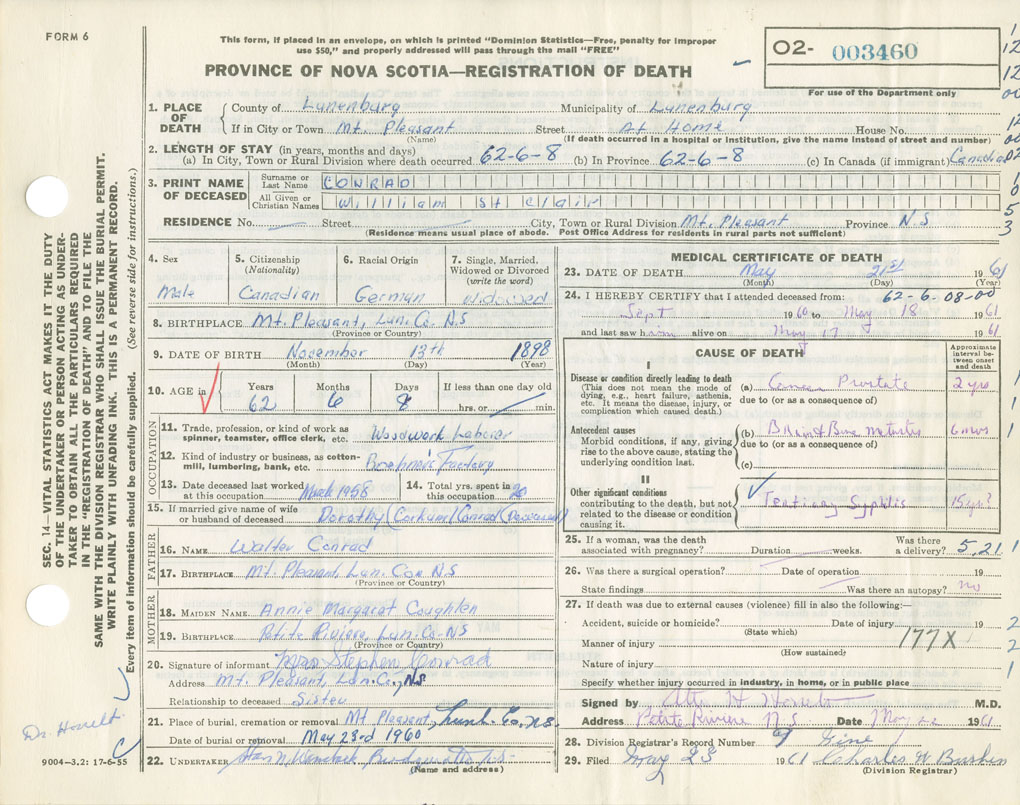 FORM 6
This form, if placed in an envelope, on which is printed "Dominion Statistics—Free, penalty for improper
use $50," and properly addressed will pass through the mail "FREE"
PROVINCE OF NOVA SCOTIA—REGISTRATION OF DEATH
O2- 003460
For use of the Department only
1. PLACE OF DEATH
County of Lunenburg Municipality of Lunenburg
If in City or Town Mt. Pleasant Street At Home House No.
(Name) (If death occurred in a hospital or institution, give the name instead of street and number)
2. LENGTH OF STAY (in years, months and days)
(a) In City, Town or Rural Division where death occurred 62-6-8 (b) In Province 62-6-8 (c) In Canada (if immigrant) Canadian
3. PRINT NAME OF DECEASED
Surname or Last Name CONRAD
All Given or Christian Names William St Clair
RESIDENCE No. Street City, Town or Rural Division Mt. Pleasant Province N.S
(Residence means usual place of abode. Post Office Address for residents in rural parts not sufficient)
4. Sex
Male
5. Citizenship
(Nationality)
Canadian
6. Racial Origin
German
7. Single, Married,
Widowed or Divorced
(write the word)
Widowed
8. BIRTHPLACE Mt. Pleasant, Lun. Co. N.S
(Province or Country)
9. DATE OF BIRTH November 13th 1898
(Month) (Day) (Year)
10. AGE in
Years Months Days If less than one day old
62 6 8 hrs. or min.
OCCUPATION
11. Trade, profession, or kind of work as
spinner, teamster, office clerk, etc. Woodwork Laborer
12. Kind of industry or business, as cotton-
mill, lumbering, bank, etc. Factory
13. Date deceased last worked
at this occupation March 1958
14. Total yrs. spent in
this occupation 20
15. If married give name of wife
or husband of deceased Dorothy (Corkum) Conrad (Deceased)
FATHER
16. NAME Walter Conrad
17. BIRTHPLACE Mt. Pleasant, Lun. Co. N.S
(Province or Country)
MOTHER
18. MAIDEN NAME Annie Margaret Coughlen
19. BIRTHPLACE Petite Riviere, Lun. Co. N.S
(Province or Country)
20. Signature of informant Mrs Stephen Conrad
Address Mt. Pleasant, Lun. Co., N.S
Relationship to deceased Sister
21. Place of burial, cremation or removal Mt Pleasant, Lun. Co. N.S.
Date of burial or removal May 23rd 1960
22. UNDERTAKER
(Name and address)
MEDICAL CERTIFICATE OF DEATH
23. DATE OF DEATH May 21st 1961
(Month) (Day) (Year)
24. I HEREBY CERTIFY that I attended deceased from: 62-6-08-00
Sept 1960 to May 18 1961
and last saw him alive on May 17 1961
CAUSE OF DEATH
Approximate interval between onset and death
I
Disease or condition directly leading to death
(This does not mean the mode of
dying, e.g., heart failure, asthenia,
etc. It means the disease, injury, or
complication which caused death.)
(a) Prostate 2 yrs
due to (or as a consequence of)
Antecedent causes
Morbid conditions, if any, giving
rise to the above cause, stating the
underlying condition last.
(b) Brain & Bone 6 mos
due to (or as a consequence of)
(c)
II
Other significant conditions
contributing to the death, but not
related to the disease or condition
causing it.
Tertiary Syphilis 15 yrs?
25. If a woman, was the death
associated with pregnancy? Duration weeks. Was there
a delivery? 5,21
26. Was there a surgical operation? Date of operation 19
State findings Was there an autopsy? no
27. If death was due to external causes (violence) fill in also the following:—
Accident, suicide or homicide? Date of injury 19
(State which)
Manner of injury 177X
(How sustained)
Nature of injury
Specify whether injury occurred in industry, in home, or in public place
Signed by M.D.
Address Petite Riviere N S Date May 22 1961
28. Division Registrar's Record Number
29. Filed May 23 1961 Charles W
(Division Registrar)
SEC. 14—VITAL STATISTICS ACT MAKES IT THE DUTY
OF THE UNDERTAKER OR PERSON ACTING AS UNDER-
TAKER TO OBTAIN ALL THE PARTICULARS REQUIRED
IN THE "REGISTRATION OF DEATH" AND TO FILE THE
SAME WITH THE DIVISION REGISTRAR WHO SHALL ISSUE THE BURIAL PERMIT.
WRITE PLAINLY WITH UNFADING INK. THIS IS A PERMANENT RECORD.
Every item of information should be carefully supplied. (See reverse side for instructions.)
9004—3.2: 17-6-55